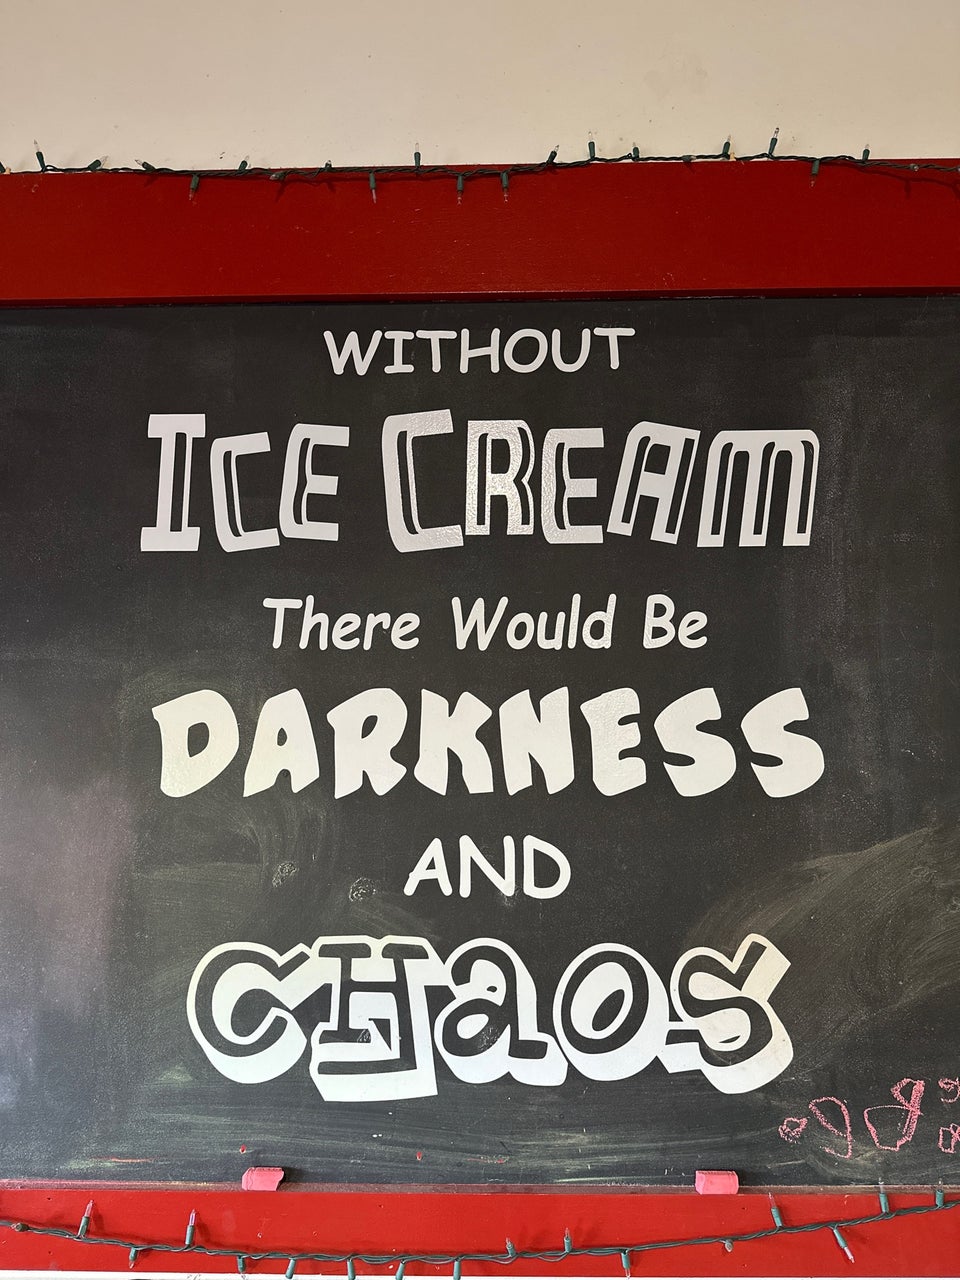 WITHOUT
ICE CREAM
There Would Be
DARKNESS
AND
CHaos